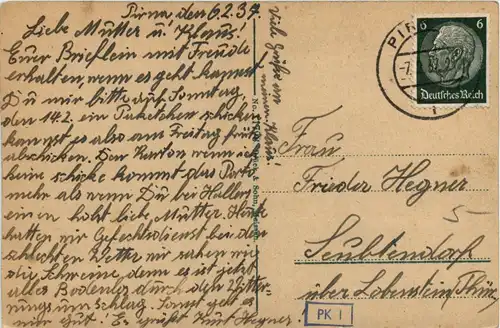 Pirna, den 6.2.37.
Liebe Mutter u. Klaus!
Euer Brieflein mit Freude
erhalten, wenn es geht kannst
Du mir bitte auf Sonntag,
den 14.2. ein Paketchen schicken
kannst es also am Freitag früh
abschicken. Den Karton wenn ich
keine schicke kommt das Porto
mehr als wenn Du bei
einen holst liebe Mutter. Heute
hatten wir Gefechtsdienst bei den
schlechten Wetter wir sahen wie
die Schweine, denn es ist jetzt
alles Bodenlos durch den Witter-
ungsumschlag. Sonst geht es
mir Gut! Es grüßt Kurt Hegner
Viele Grüße an
meinen Klaus!
PIR
6 6
Deutsches Reich
Frau
Frieder Hegner
über Lobenstein Thür.
5
PK I